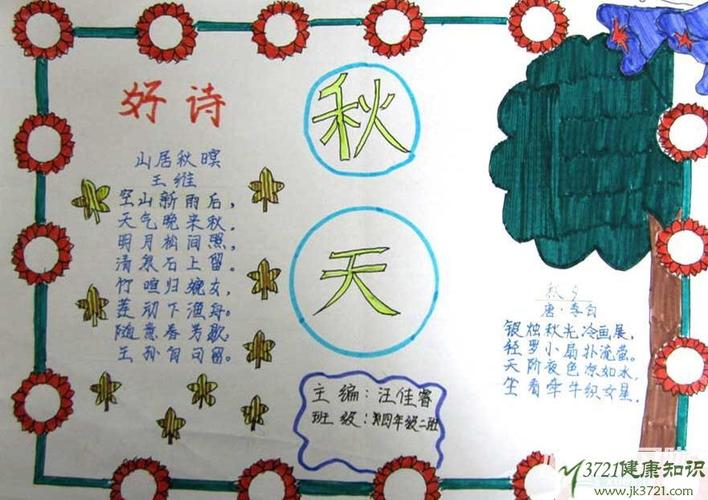 好诗
山居秋暝
王维
空山新雨后，
天气晚来秋。
明月松间照，
清泉石上留。
竹喧归女，
莲动下渔舟。
随意春芳歇，
王孙自可留。
秋
天
主编：汪佳睿
班级：四年级二班
秋夕
唐·李白
银烛秋光冷画展，
轻罗小扇扑流萤。
天阶夜色凉如水，
坐看牵牛织女星.
3721健康知识
www.jk3721.com